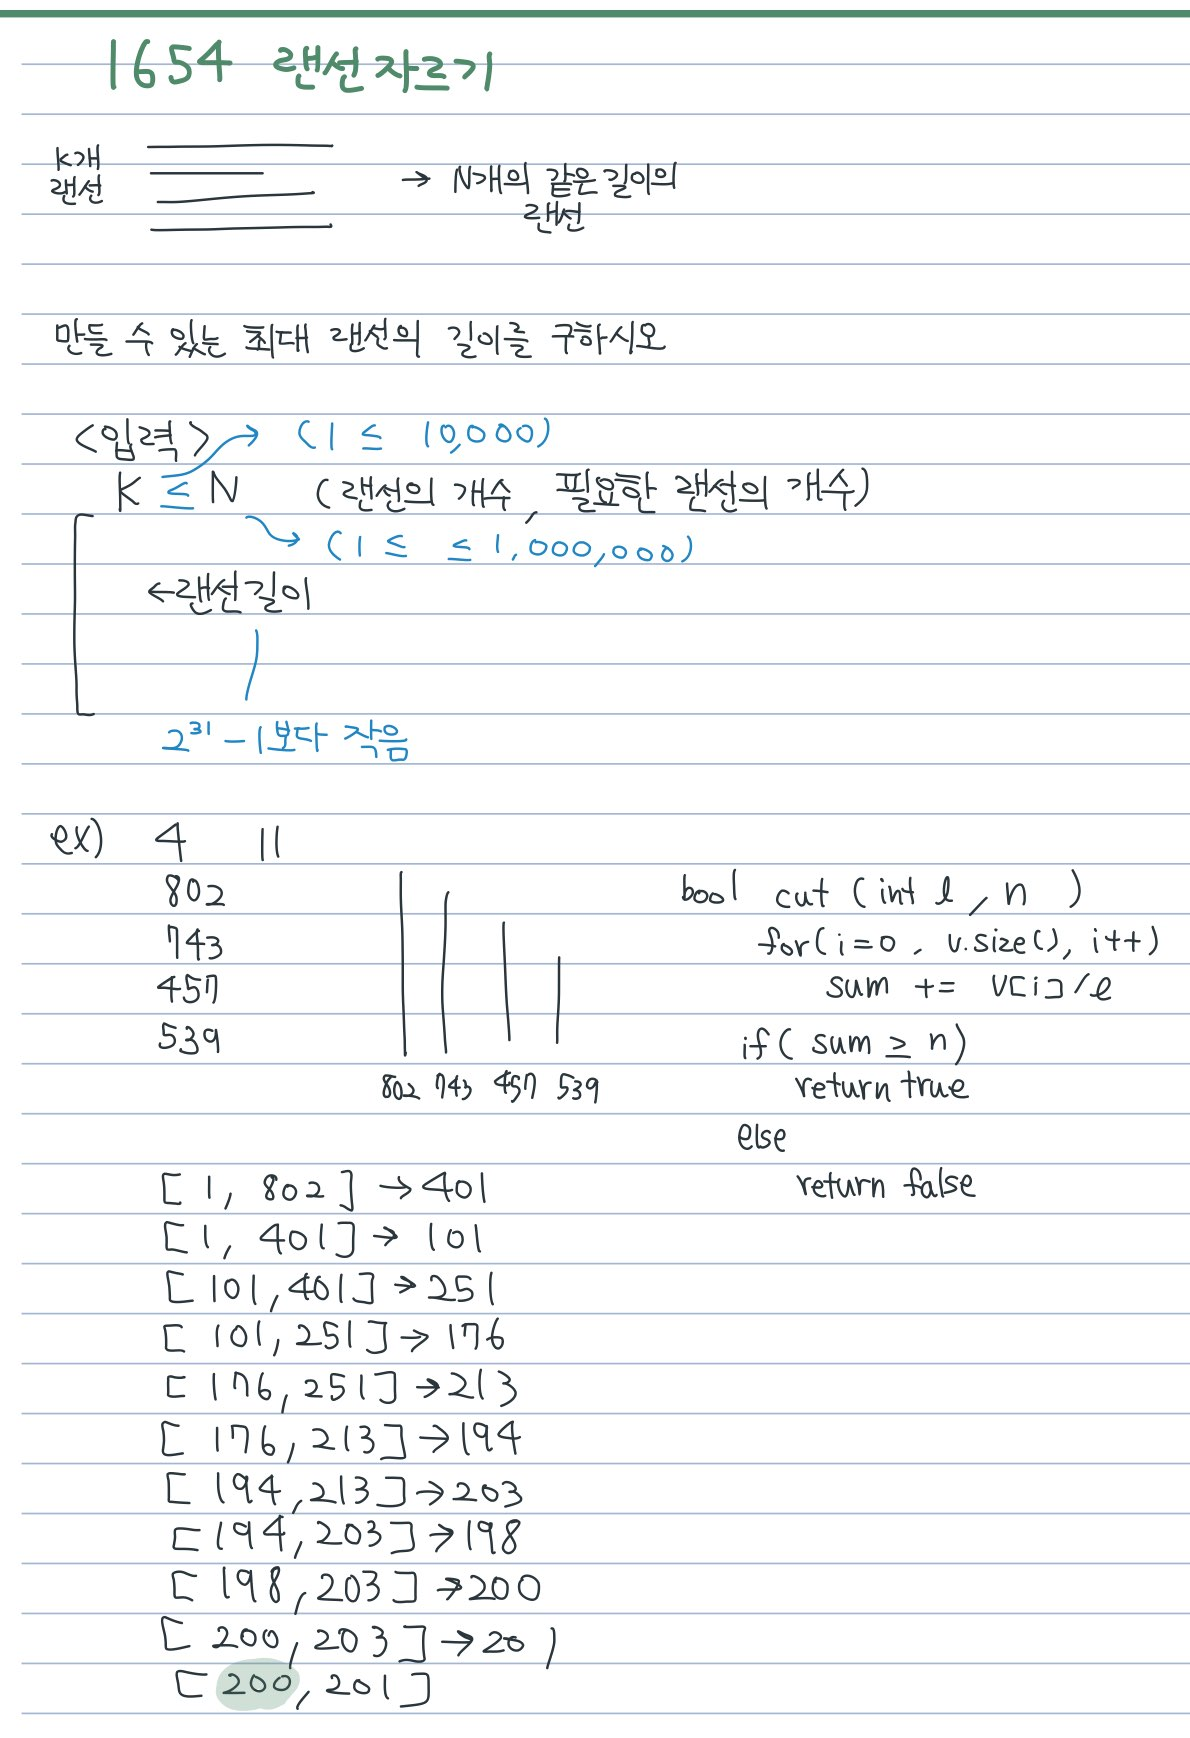 1654 랜선자르기
K개
랜선
→ N개의 같은 길이의
랜선
만들 수 있는 최대 랜선의 길이를 구하시오
<입력> (1 ≤ 10,000)
K ≤ N (랜선의 개수, 필요한 랜선의 개수)
(1 ≤ ≤ 1,000,000)
←랜선길이
2³¹-1보다 작음
ex) 4 11
802
743
457
539
802 743 457 539
bool cut (int l, n )
for(i=0, v.size(), i++)
sum += v[i]/l
if( sum ≥ n)
return true
else
return false
[1, 802] → 401
[1, 401] → 101
[101, 401] → 251
[101, 251] → 176
[176, 251] → 213
[176, 213] → 194
[194, 213] → 203
[194, 203] → 198
[198, 203] → 200
[200, 203] → 201
[200, 201]